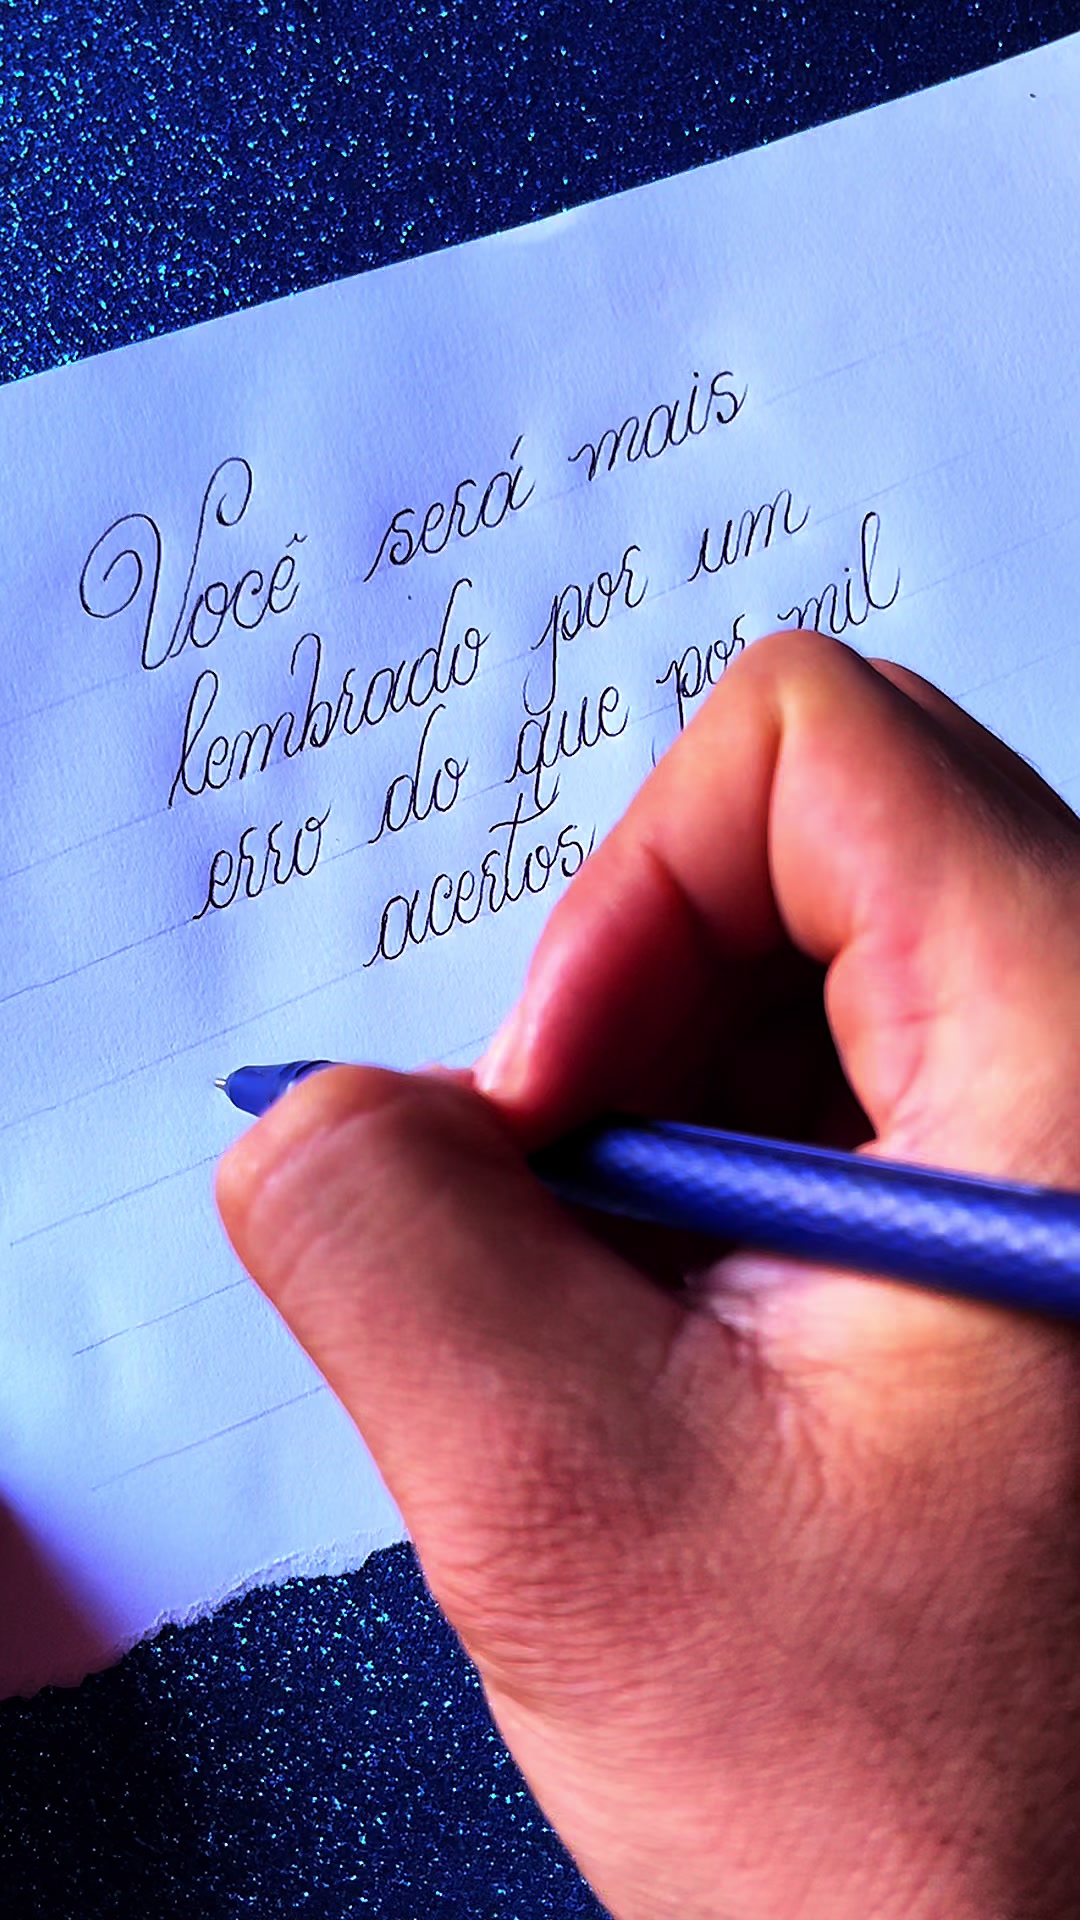 Você será mais
lembrado por um
erro do que por mil
acertos